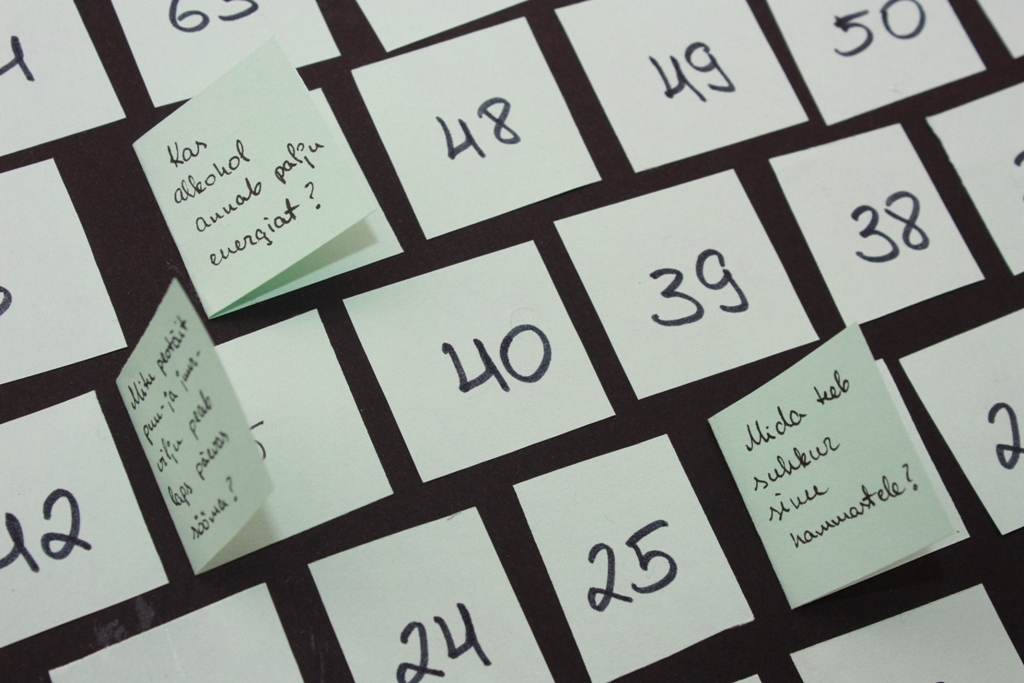 63
50
49
48
Kas
alkohol
annab palju
energiat?
38
39
40
Mitu peotäit
puu- ja juur-
vilju peab
laps päevas
sööma?
42
Mida teeb
suhkur
sinu
hammastele?
25
24